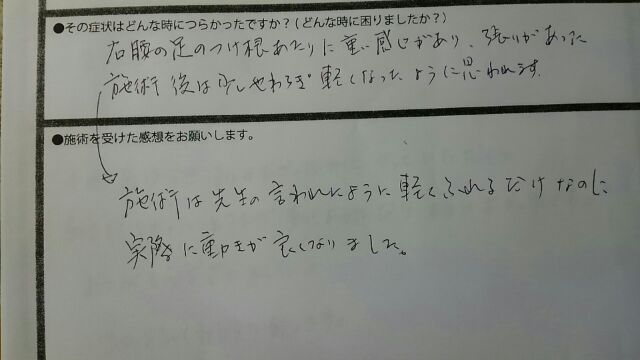 ●その症状はどんな時につらかったですか？（どんな時に困りましたか？）
右腰の足のつけ根あたりに重い感じがあり、張りがあった
施術後は少しやわらぎ軽くなったように思われます。
●施術を受けた感想をお願いします。
施術は先生の言われたように軽くふれるだけなのに
実際に動きが良くなりました。